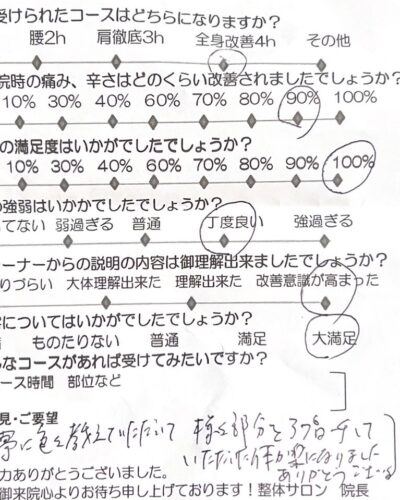 受けられたコースはどちらになりますか？
腰2h 肩徹底3h 全身改善4h その他
院時の痛み、辛さはどのくらい改善されましたでしょうか？
10% 30% 40% 60% 70% 80% 90% 100%
の満足度はいかがでしたでしょうか？
10% 30% 40% 60% 70% 80% 90% 100%
の強弱はいかがでしたでしょうか？
てない 弱過ぎる 普通 丁度良い 強過ぎる
ーナーからの説明の内容は御理解出来ましたでしょうか？
りづらい 大体理解出来た 理解出来た 改善意識が高まった
についてはいかがでしたでしょうか？
ものたりない 普通 満足 大満足
なコースがあれば受けてみたいですか？
ース時間 部位など
見・ご要望
教えていただいて 部分を
いただいた体が楽になりました
ありがとうございました
力ありがとうございました。
御来院心よりお待ち申し上げております！整体サロン 院長